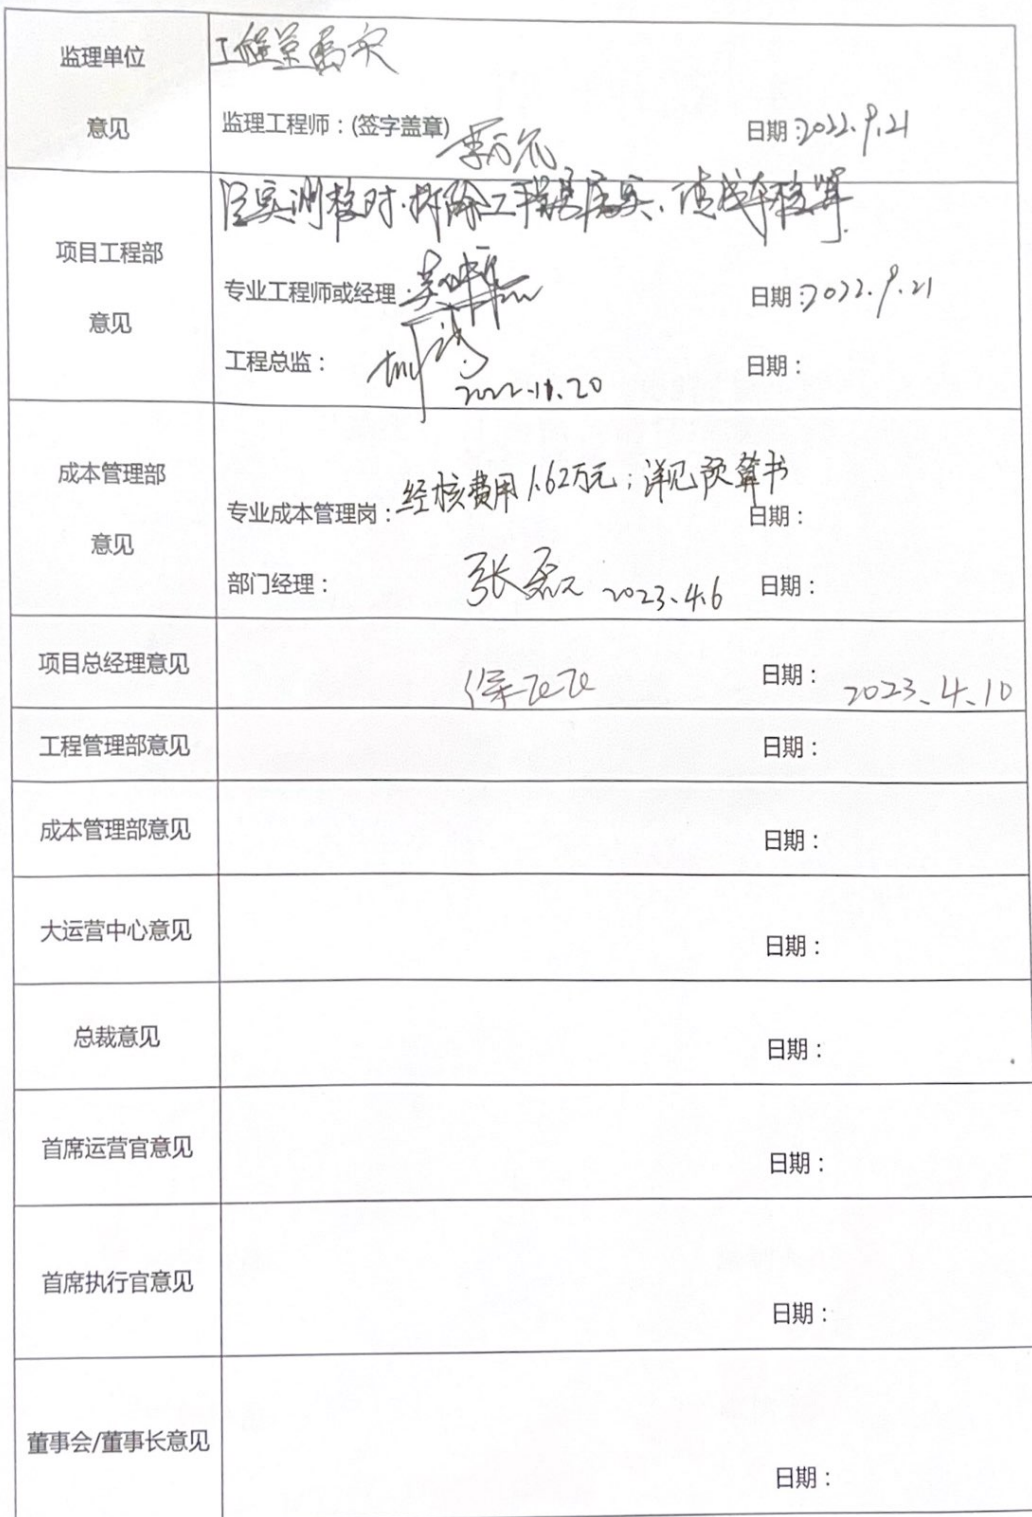 监理单位
意见
工程量属实
监理工程师：(签字盖章)
日期：2022.9.21
项目工程部
意见
经实测核对,拆除工程量属实、请成本核算.
专业工程师或经理：
日期：2022.9.21
工程总监：
日期：
2022.11.20
成本管理部
意见
专业成本管理岗：经核费用1.62万元；详见预算书
日期：
部门经理：张磊 2023.4.6 日期：
项目总经理意见
徐飞飞
日期：2023.4.10
工程管理部意见
日期：
成本管理部意见
日期：
大运营中心意见
日期：
总裁意见
日期：
首席运营官意见
日期：
首席执行官意见
日期：
董事会/董事长意见
日期：